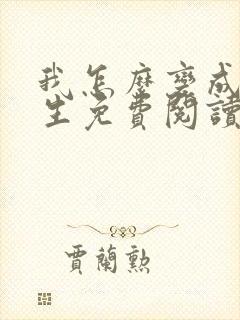 我怎麼變成
生免費閱讀
賈蘭勲